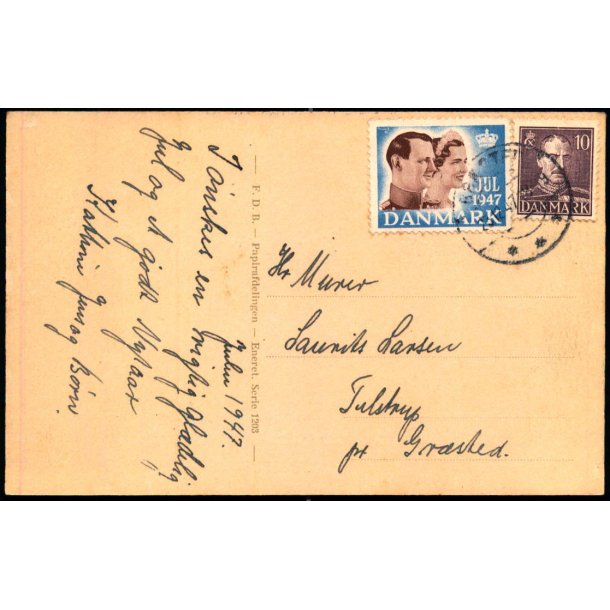 Julen 1947.
I ønskes en rigtig Glædelig
Jul og et godt Nytaar
Kathrine Jens og Børn.
F. D. B. — Papirafdelingen — Eneret. Serie 1203
JUL
1947
DANMARK
10
DANMARK
Hr Murer
Laurits Larsen
Tulstrup
pr Græsted.